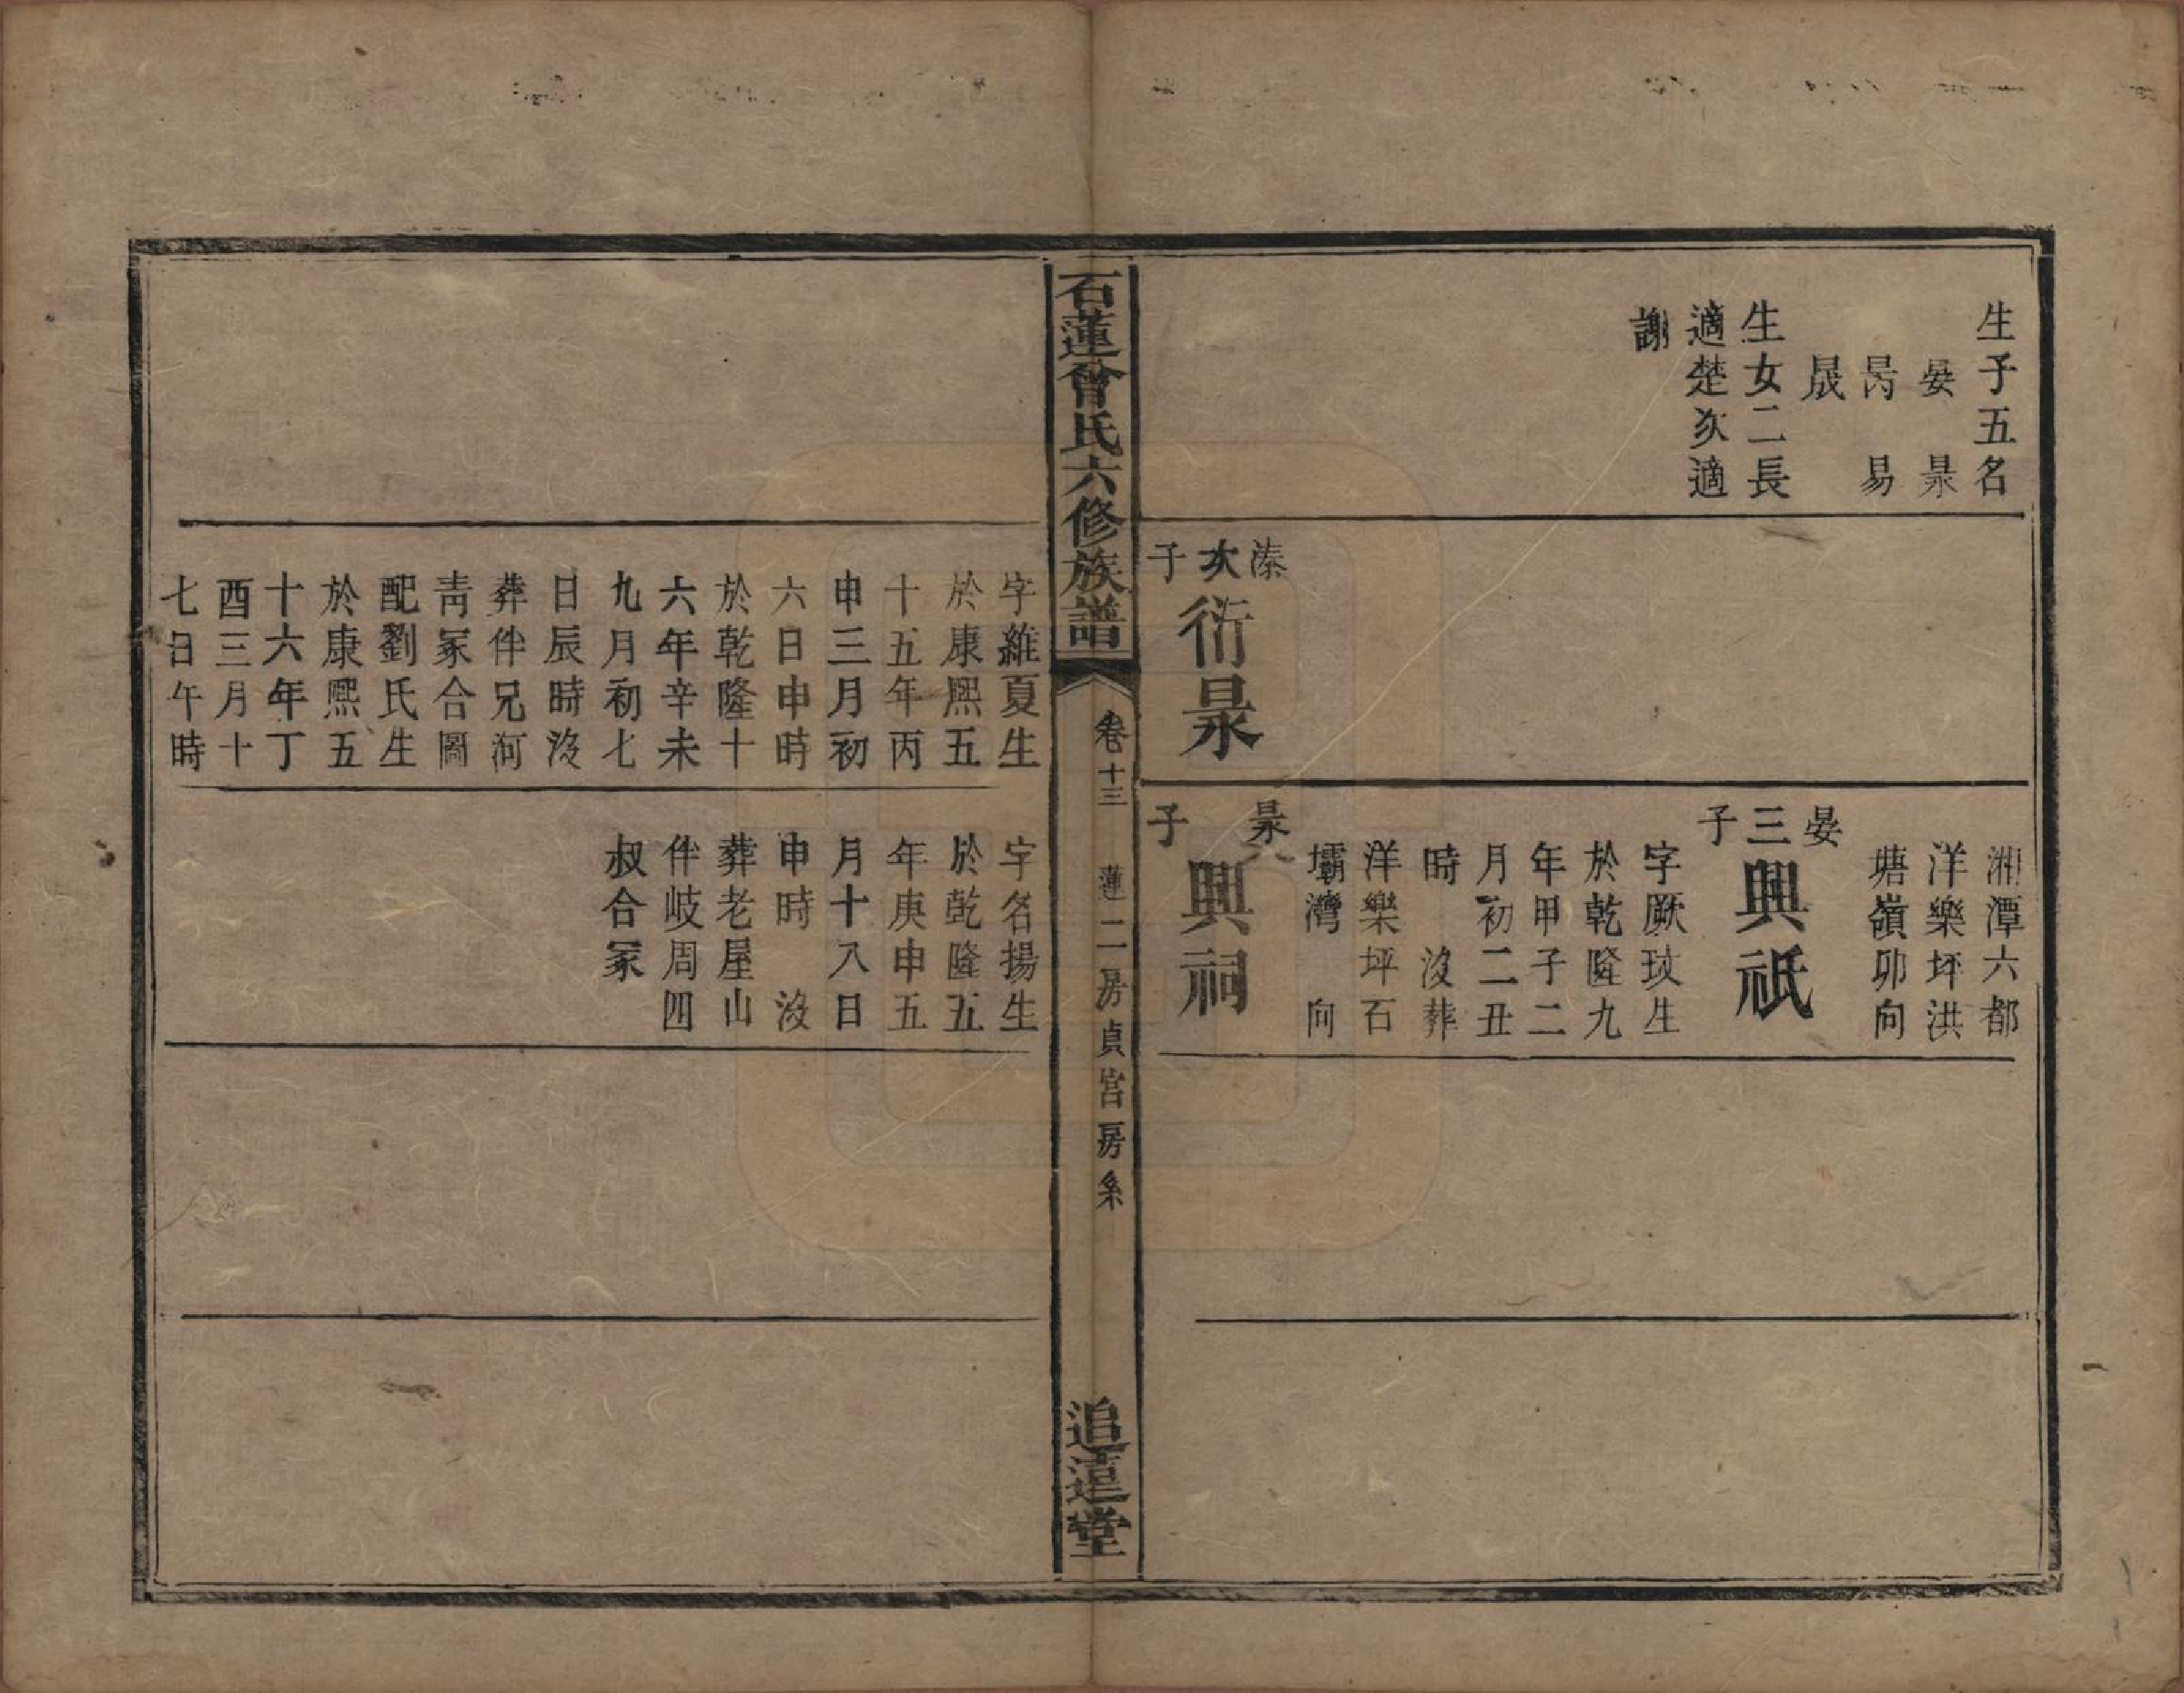 生子五名
晏 㬎
昺 易
晟
生女二長
適楚次適
謝
溱次子
衍㬎
湘潭六都
洋樂坪洪
塘嶺卯向
晏三子
興祇
字厥玟生
於乾隆九
年甲子二
月初二丑
時 沒葬
洋樂坪石
壩灣 向
子
興祠
石蓮曾氏六修族譜
卷十三
蓮二房貞宮房系
追遠堂
字維夏生
於康熙五
十五年丙
申三月初
六日申時
於乾隆十
六年辛未
九月初七
日辰時沒
葬伴兄河
靑冢合圖
配劉氏生
於康熙五
十六年丁
酉三月十
七日午時
字名揚生
於乾隆五
年庚申五
月十八日
申時 沒
葬老屋山
伴岐周四
叔合冢